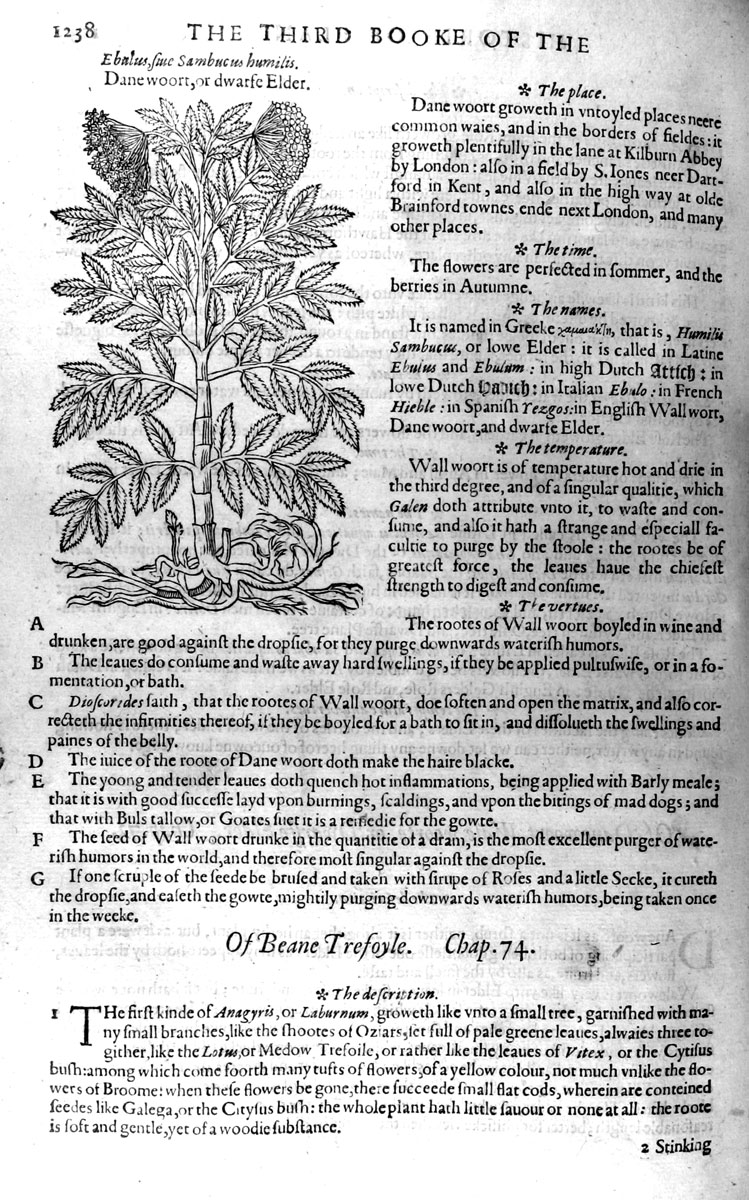 1238 THE THIRD BOOKE OF THE
Ebulus, ſiue Sambucus humilis.
Dane woort, or dwarfe Elder.
✻ The place.
Dane woort groweth in vntoyled places neere
common waies, and in the borders of fieldes: it
groweth plentifully in the lane at Kilburn Abbey
by London: alſo in a field by S. Iones neer Dart-
ford in Kent, and alſo in the high way at olde
Brainford townes ende next London, and many
other places.
✻ The time.
The flowers are perfected in ſommer, and the
berries in Autumne.
✻ The names.
It is named in Greeke that is, Humilis
Sambucus, or lowe Elder: it is called in Latine
Ebulus and Ebulum: in high Dutch Attich: in
lowe Dutch Hadich: in Italian Ebulo: in French
Hieble: in Spaniſh Yezgos: in Engliſh Wall wort,
Dane woort, and dwarfe Elder.
✻ The temperature.
Wall woort is of temperature hot and drie in
the third degree, and of a ſingular qualitie, which
Galen doth attribute vnto it, to waſte and con-
ſume, and alſo it hath a ſtrange and eſpeciall fa-
cultie to purge by the ſtoole: the rootes be of
greateſt force, the leaues haue the chiefeſt
ſtrength to digeſt and conſume.
✻ The vertues.
A The rootes of Wall woort boyled in wine and
drunken, are good againſt the dropſie, for they purge downwards wateriſh humors.
B The leaues do conſume and waſte away hard ſwellings, if they be applied pultuſwiſe, or in a fo-
mentation, or bath.
C Dioſcorides ſaith, that the rootes of Wall woort, doe ſoften and open the matrix, and alſo cor-
recteth the infirmities thereof, if they be boyled for a bath to ſit in, and diſſolueth the ſwellings and
paines of the belly.
D The iuice of the roote of Dane woort doth make the haire blacke.
E The yoong and tender leaues doth quench hot inflammations, being applied with Barly meale;
that it is with good ſucceſſe layd vpon burnings, ſcaldings, and vpon the bitings of mad dogs; and
that with Buls tallow, or Goates ſuet it is a remedie for the gowte.
F The ſeed of Wall woort drunke in the quantitie of a dram, is the moſt excellent purger of wate-
riſh humors in the world, and therefore moſt ſingular againſt the dropſie.
G If one ſcruple of the ſeede be bruſed and taken with ſirupe of Roſes and a little Secke, it cureth
the dropſie, and eaſeth the gowte, mightily purging downwards wateriſh humors, being taken once
in the weeke.
Of Beane Trefoyle. Chap. 74.
✻ The deſcription.
1 THe firſt kinde of Anagyris, or Laburnum, groweth like vnto a ſmall tree, garniſhed with ma-
ny ſmall branches, like the ſhootes of Oziars, ſet full of pale greene leaues, alwaies three to-
gither, like the Lotus, or Medow Trefoile, or rather like the leaues of Vitex, or the Cytiſus
buſh: among which come foorth many tufts of flowers, of a yellow colour, not much vnlike the flo-
wers of Broome: when theſe flowers be gone, there ſucceede ſmall flat cods, wherein are conteined
ſeedes like Galega, or the Citysus buſh: the whole plant hath little ſauour or none at all: the roote
is ſoft and gentle, yet of a woodie ſubſtance.
2 Stinking